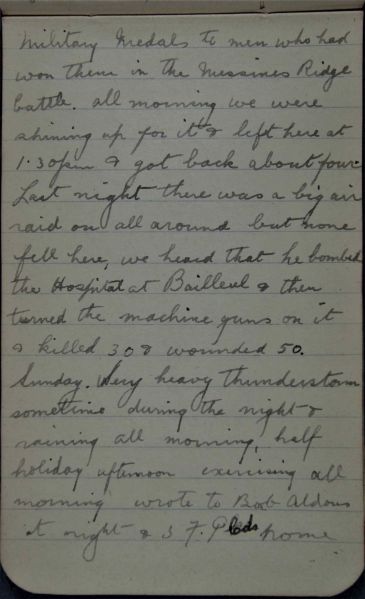 Military Medals to men who had
won them in the Messines Ridge
battle. all morning we were
shining up for it & left here at
1.30pm & got back about four.
Last night there was a big air
raid on all around but none
fell here, we heard that he bombed
the Hospital at Bailleul & then
turned the machine guns on it
& killed 30 & wounded 50.
Sunday. Very heavy thunderstorm
sometime during the night &
raining all morning, half
holiday afternoon exercising all
morning wrote to Bob Aldous
at night & 3 F. P Cds home